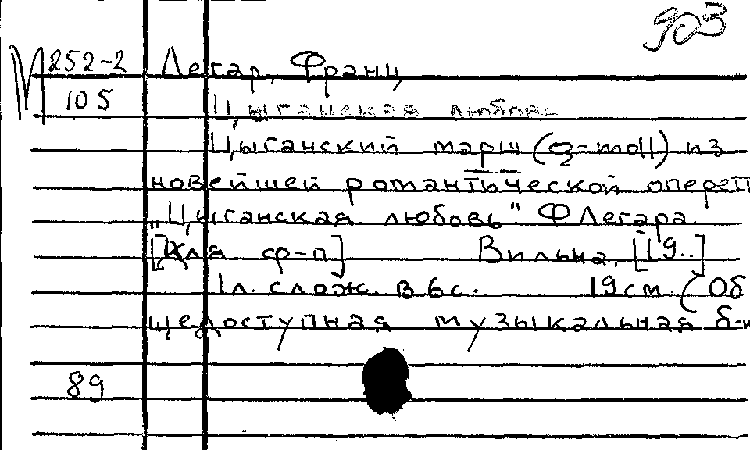 903
М 252-2 Легар, Франц
105 Цыганская любовь
Цыганский марш (g-moll) из
новейшей романтической оперет
"Цыганская любовь" Ф Легара
[Для ф-п] Вильна, [19..]
1л. слож. в 6с. 19см. (Об
щедоступная музыкальная б-к
89